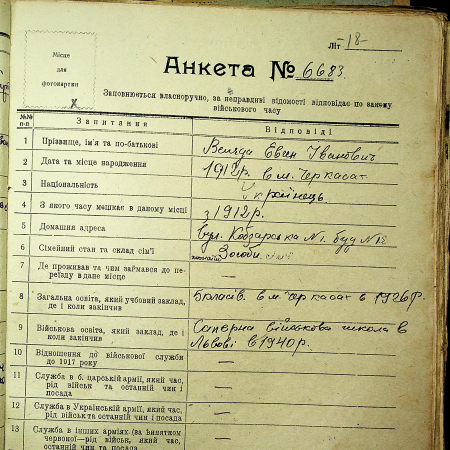 Літ -18-
Місце
для
фотокартки
Анкета № 6683.
Заповнюється власноручно, за неправдиві відомості відповідає по закону
військового часу
№№
п-п
Запитання
Відповіді
1 Прізвище, ім'я та по-батькові Євген Іванович
2 Дата та місце народження 1912 р. в м. Черкасах
3 Національність Українець
4 З якого часу мешкає в даному місці з 1912 р.
5 Домашня адреса вул. Кобзарська № буд №
6 Сімейний стан та склад сім'ї
7 Де проживав та чим займався до пе-
реїзду в дане місце —
8 Загальна освіта, який учбовий заклад,
де і коли закінчив в м. Черкасах в 1926 р.
9 Військова освіта, який заклад, де і Саперна військова школа в
коли закінчив Львові в 1940 р.
10 Відношення до військової служби
до 1917 року —
11 Служба в б. царській армії, який час,
рід військ та останній чин і
посада —
12 Служба в Українській армії, який час,
рід військ та останній чин і посада —
13 Служба в інших арміях (за винятком
червоної—рід військ, який час,
останній чин та посада —